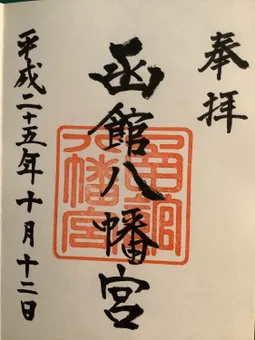 奉拝
函館八幡宮
平成二十五年十月十二日
函館
八幡宮